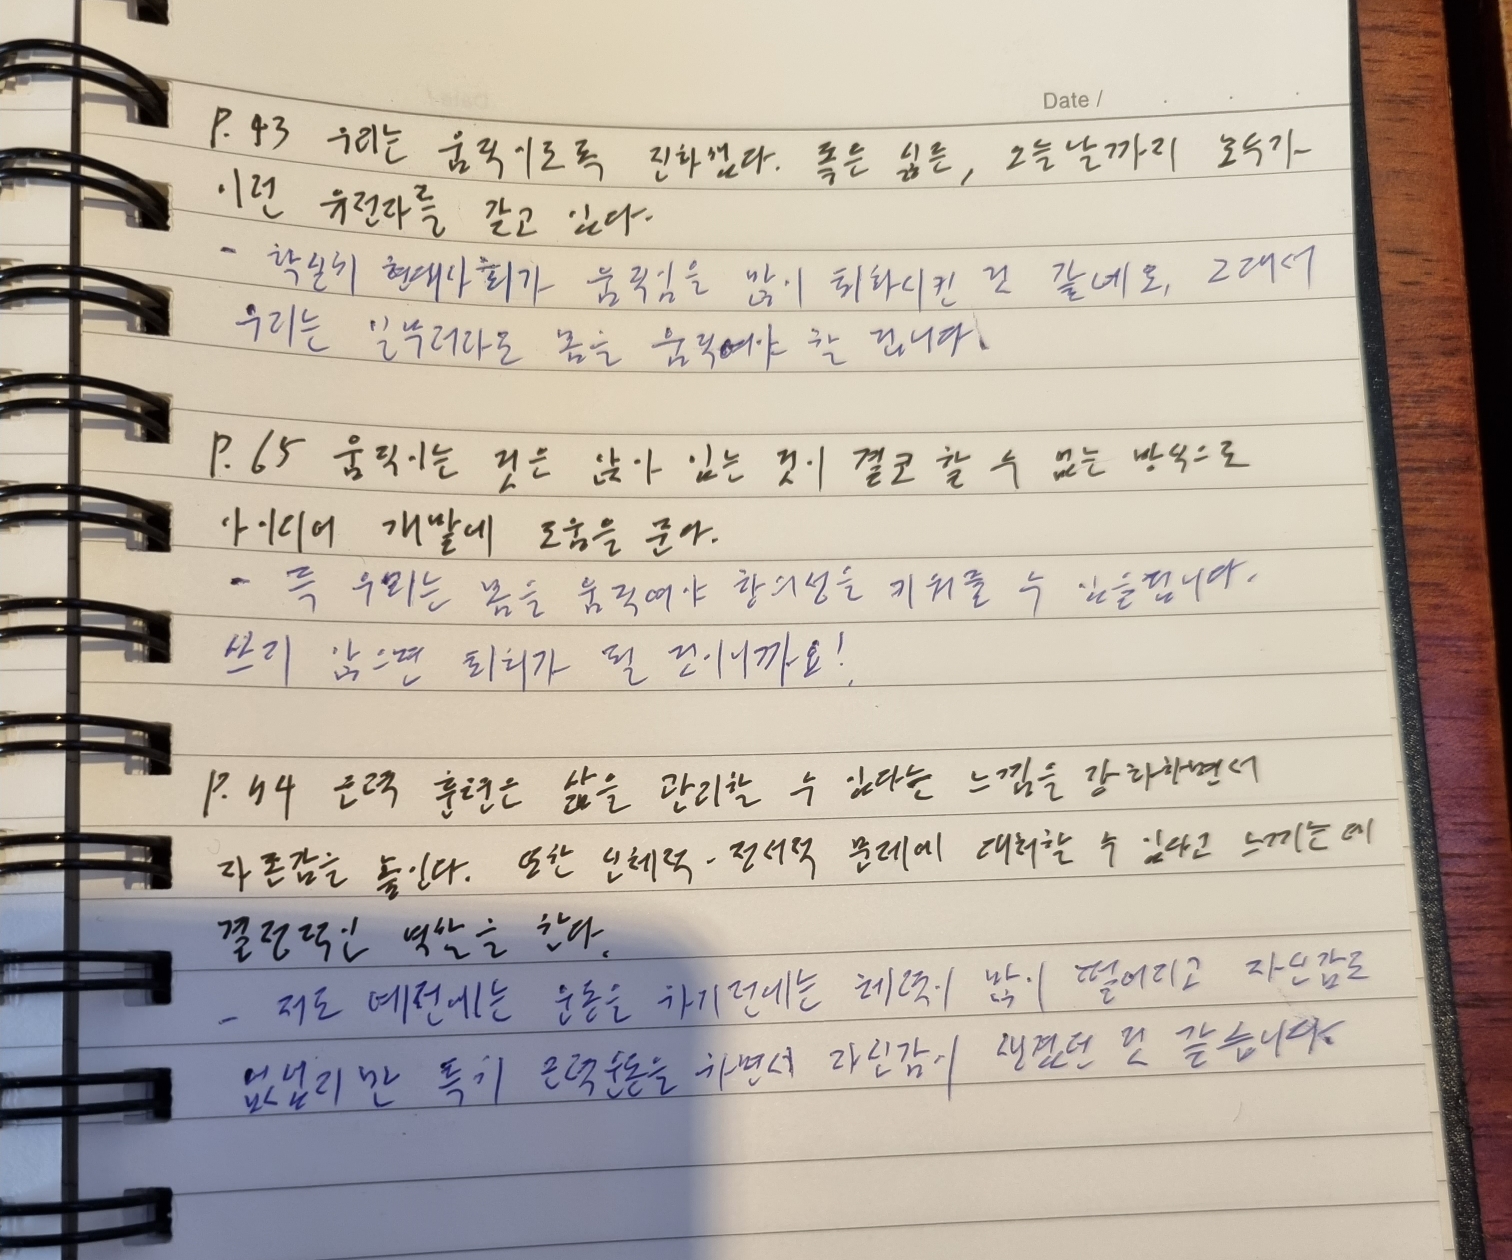 Date /
P. 43 우리는 움직이도록 진화했다. 혹은 싫든, 오늘날까지 모두가
이런 유전자를 갖고 있다.
- 확실히 현대사회가 움직임을 많이 퇴화시킨 것 같네요, 그래서
우리는 일부러라도 몸을 움직여야 할 겁니다.
P. 65 움직이는 것은 앉아 있는 것이 결코 할 수 없는 방식으로
아이디어 개발에 도움을 준다.
- 즉 우리는 몸을 움직여야 창의성을 키워줄 수 있을겁니다.
쓰지 않으면 퇴화가 될 것이니까요!
P. 44 근력 훈련은 삶을 관리할 수 있다는 느낌을 강화하면서
자존감을 높인다. 또한 신체적·정서적 문제에 대처할 수 있다고 느끼는데
결정적인 역할을 한다.
- 저도 예전에는 운동을 하기전에는 체력이 많이 떨어지고 자신감도
없었지만 특히 근력운동을 하면서 자신감이 생겼던 것 같습니다.